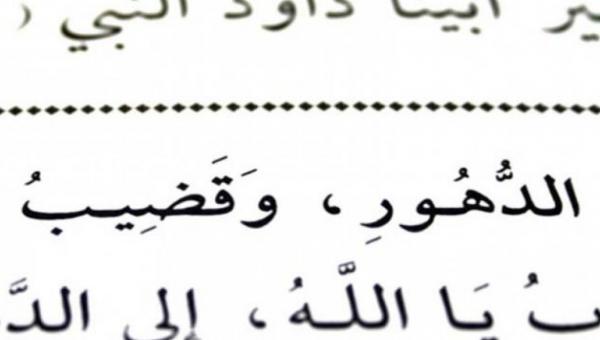 أبينا داود النبي
الدُّهُورِ، وَقَضِيبُ
يَا اللَّهُ، إلى